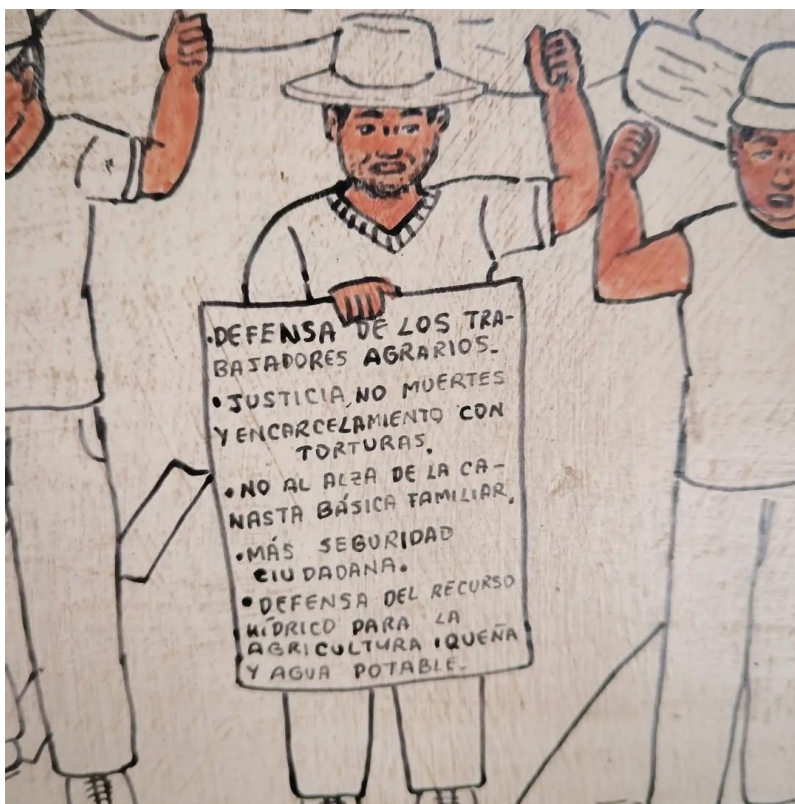 •DEFENSA DE LOS TRA-
BAJADORES AGRARIOS.
•JUSTICIA, NO MUERTES
Y ENCARCELAMIENTO CON
TORTURAS.
•NO AL ALZA DE LA CA-
NASTA BÁSICA FAMILIAR.
•MÁS SEGURIDAD
CIUDADANA.
•DEFENSA DEL RECURSO
HÍDRICO PARA LA
AGRICULTURA IQUEÑA
Y AGUA POTABLE.